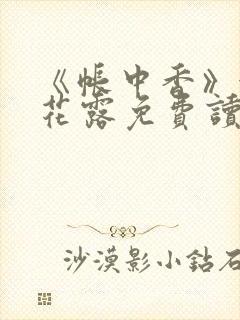 《帳中香》
花露免費讀
沙漠影小鉆石